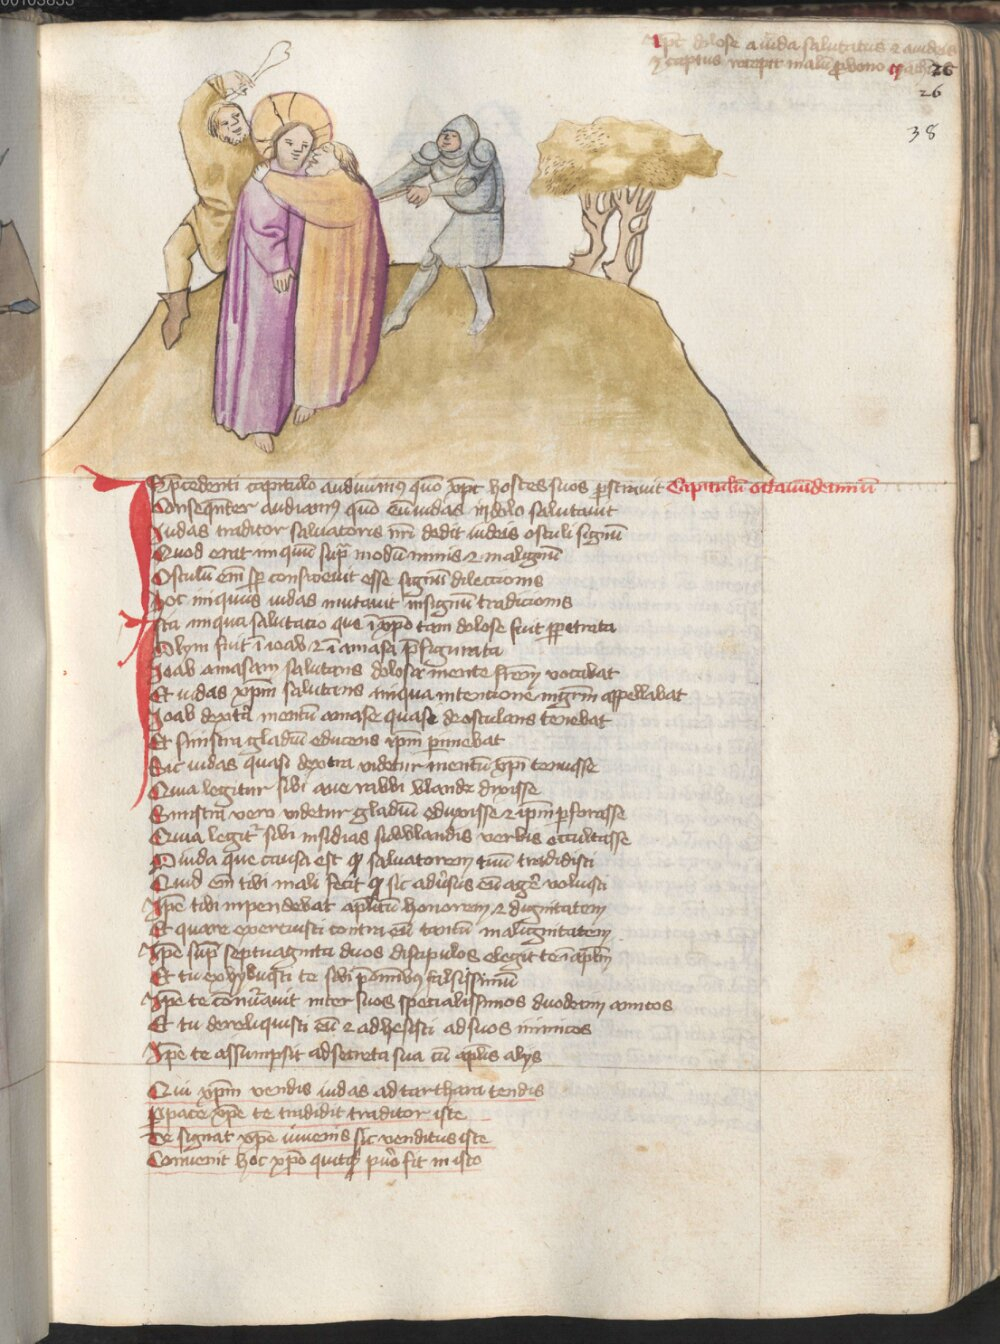 00103855
Xpc dolose a iuda salutatus
26
26
38
In p̄cedenti capitulo audiuimꝯ quō xp̄c hostes suos p̄strauit Capitulū octauūdecimū
Consequēter audiamꝯ quō eū iudas in dolo salutauit
Iudas traditor saluatoris nr̄i dedit iudeis osculi signū
Quod erat iniquū sup̄ modū nimis ⁊ malignū
Osculū em̄ sp̄ consweuit esse signū dilectionis
Hoc iniquus iudas mutauit in signū tradicionis
Ista iniqua salutacio que ī xp̄o tam dolose fuit ꝑpetrata
Olym fuit ī ioab ⁊ ī amasa p̄figurata
Ioab amasam salutans dolosa mente fr̄em vocabat
Et iudas xp̄m salutans iniqua intencione mgr̄m appellabat
Ioab dext̄a mentū amase quasi deosculans tenebat
Et sinistra gladiū educens ip̄m ꝑimebat
Sic iudas quasi dextra videtur mentū xp̄i tenuisse
Quia legitur sibi aue rabbi blande dixisse
Sinistra vero videtur gladiū eduxisse ⁊ ip̄m ꝑforasse
Quia legit̄ sibi insidias sub blandis verbis occultasse
O iuda que causa est ꝙ saluatorem tuū tradidisti
Quid em̄ tibi mali fecit ꝙ sic adūsus eū agē voluisti
Ip̄e tibi inpendebat ap̄licū honorem ⁊ dignitatem
Et quare exercuisti contra eū tantū malignitatem
Ip̄e sup̄ septuaginta duos discipulos elegit te ī ap̄lm
Et tu exhybuisti te sibi p̄ omībus falsissimū
Ip̄e te cōnūauit inter suos specialissimos duodecim amicos
Et tu dereliquisti eū ⁊ adhesisti ad suos inimicos
Ip̄e te assumpsit ad secreta sua cū ap̄lis alys
Qui xp̄m vendis iudas ad tarthara tendis
P pace xp̄e te tradidit traditor iste
Te signat xp̄e iuuenis sic venditus iste
Conuenit hoc xp̄o quitꝗ puō fit in isto